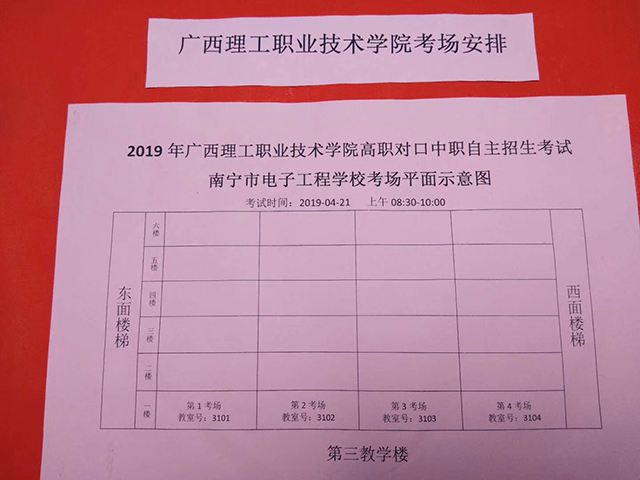 广西理工职业技术学院考场安排
2019 年广西理工职业技术学院高职对口中职自主招生考试
南宁市电子工程学校考场平面示意图
考试时间：2019-04-21 上午 08:30-10:00
东面楼梯
六楼
五楼
四楼
三楼
二楼
一楼
第 1 考场
教室号：3101
第 2 考场
教室号：3102
第 3 考场
教室号：3103
第 4 考场
教室号：3104
西面楼梯
第三教学楼